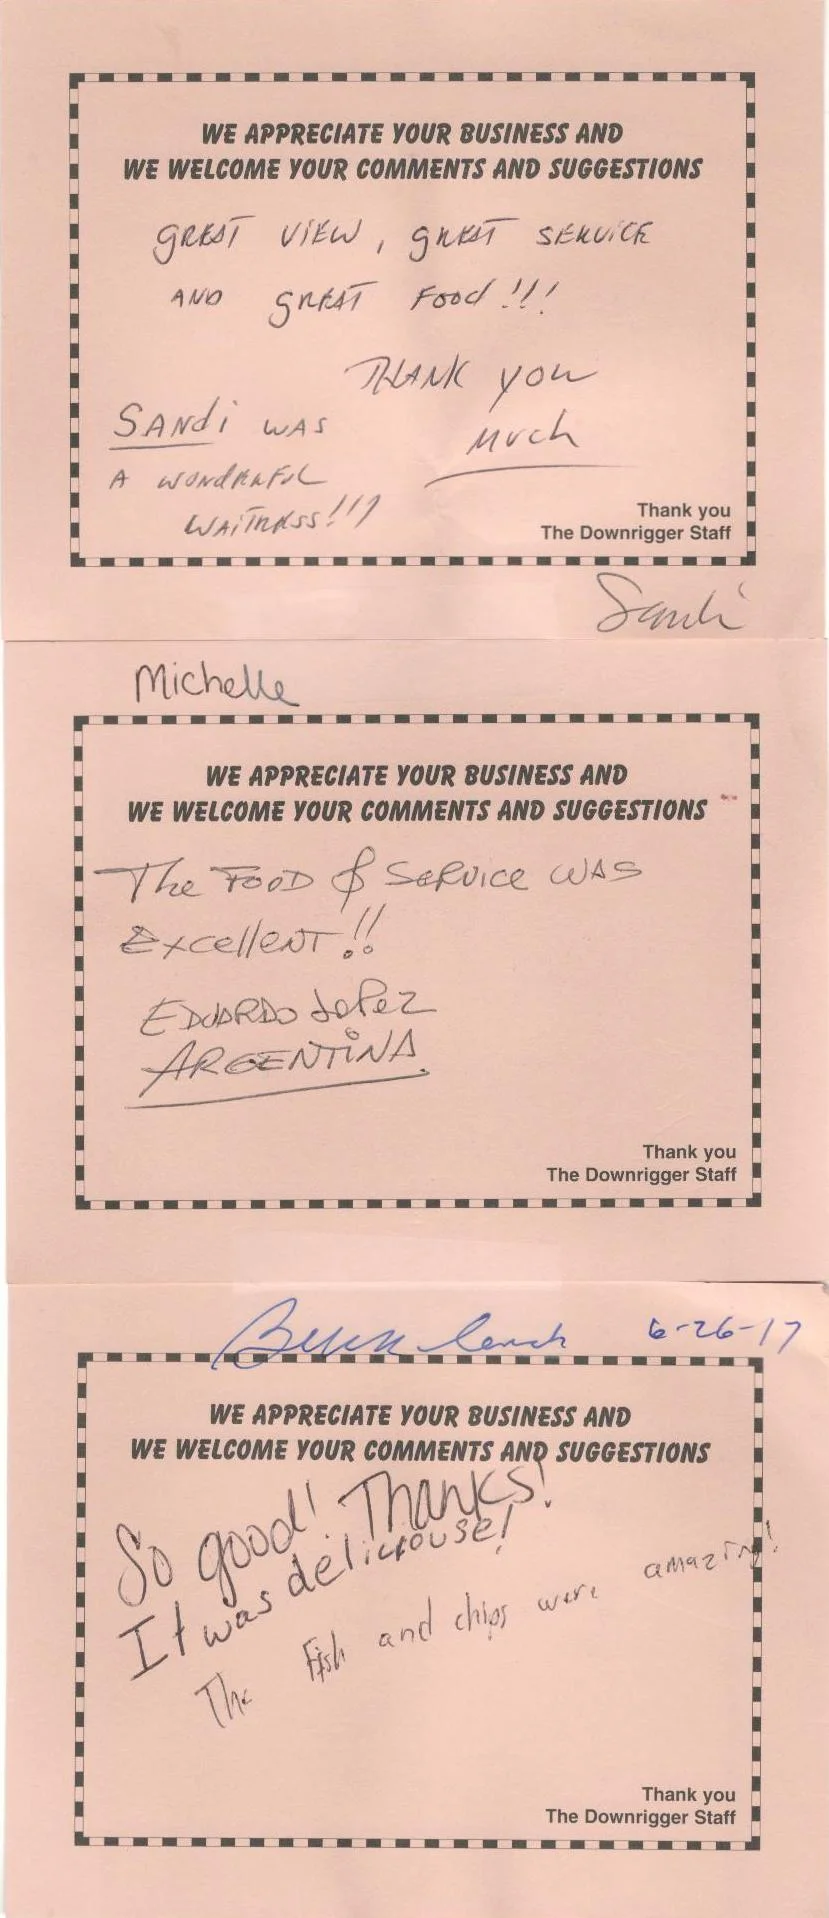 WE APPRECIATE YOUR BUSINESS AND
WE WELCOME YOUR COMMENTS AND SUGGESTIONS
GREAT VIEW, GREAT SERVICE
AND GREAT Food!!!
THANK YOU
MUCH
SANdi WAS
A WONdERFUL
WAiTRESS!!!
Thank you
The Downrigger Staff
Sandi
Michelle
WE APPRECIATE YOUR BUSINESS AND
WE WELCOME YOUR COMMENTS AND SUGGESTIONS
The FOOD & SERVice WAS
ExcellenT!!
EDUARDO LoPez
ARGENTiNA
Thank you
The Downrigger Staff
Lunch 6-26-17
WE APPRECIATE YOUR BUSINESS AND
WE WELCOME YOUR COMMENTS AND SUGGESTIONS
So good! Thanks!
It was deliciouse!
The Fish and chips were amazing!
Thank you
The Downrigger Staff